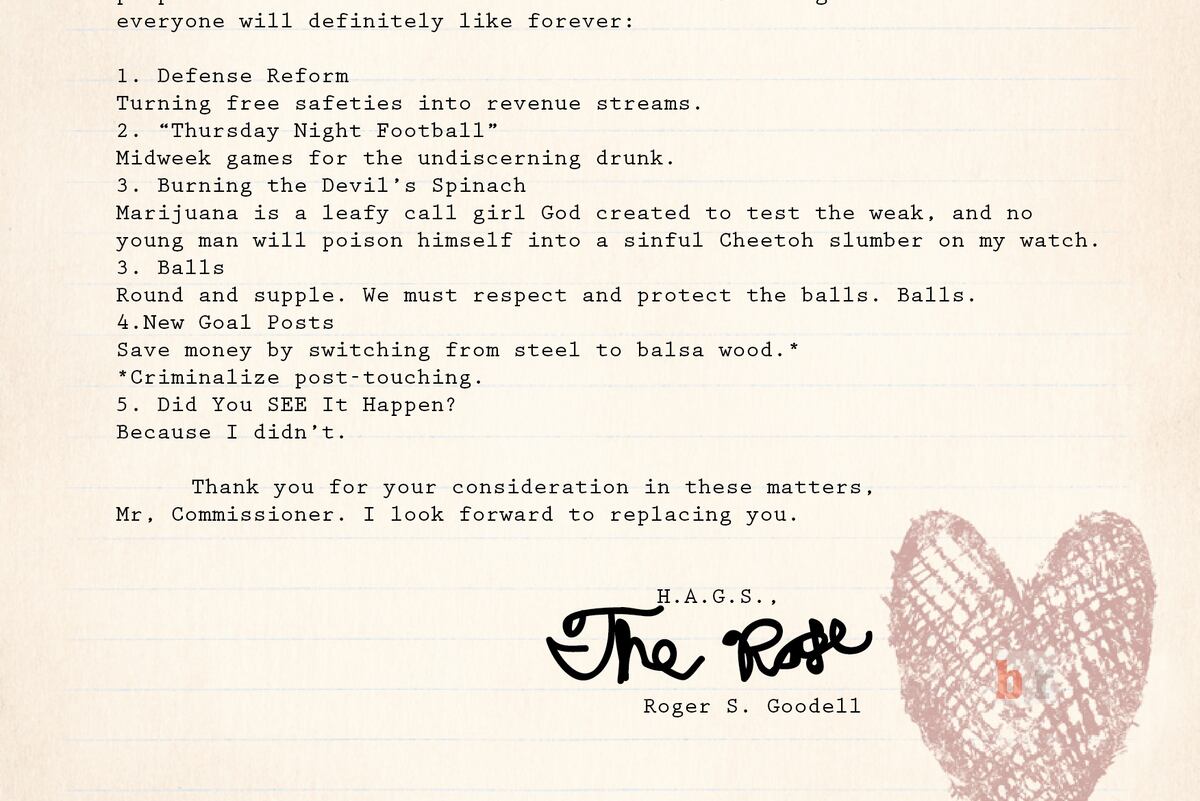 everyone will definitely like forever:
1. Defense Reform
Turning free safeties into revenue streams.
2. “Thursday Night Football”
Midweek games for the undiscerning drunk.
3. Burning the Devil’s Spinach
Marijuana is a leafy call girl God created to test the weak, and no
young man will poison himself into a sinful Cheetoh slumber on my watch.
3. Balls
Round and supple. We must respect and protect the balls. Balls.
4.New Goal Posts
Save money by switching from steel to balsa wood.*
*Criminalize post-touching.
5. Did You SEE It Happen?
Because I didn’t.
Thank you for your consideration in these matters,
Mr, Commissioner. I look forward to replacing you.
H.A.G.S.,
The Rose
Roger S. Goodell
b/r